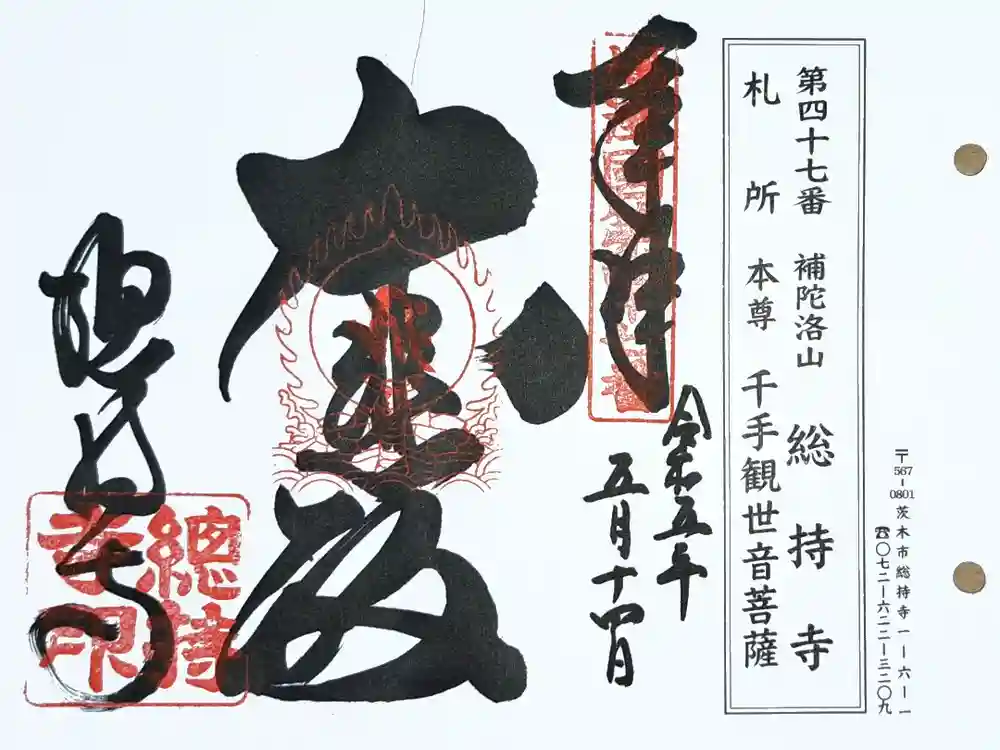 〒567-0801 茨木市総持寺一ー六ー一
☎〇七二ー六二二ー三二〇九
第四十七番 補陀洛山 総持寺
札所 本尊 千手観世音菩薩
奉拝
令和五年
五月十四日
大悲殿
總持寺
總持寺印